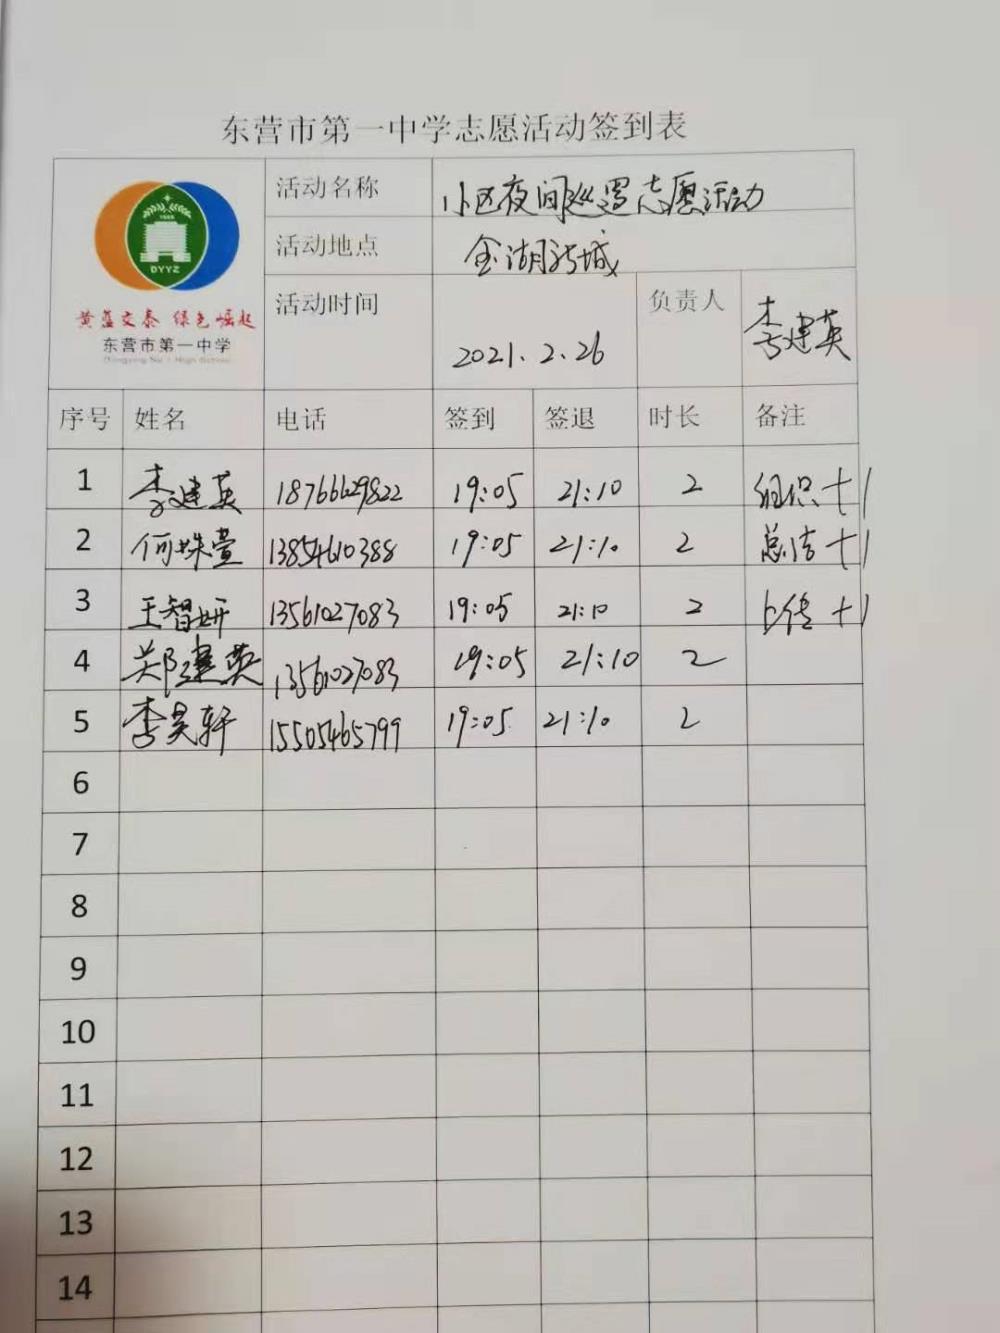 东营市第一中学志愿活动签到表
活动名称 小区夜间巡逻志愿活动
1952
DYYZ
活动地点 金湖新城
黄蓝交泰 绿色崛起
东营市第一中学
Dongying No.1 High School
活动时间 2021.2.26 负责人 李建英
序号 姓名 电话 签到 签退 时长 备注
1 李建英 18766629822 19:05 21:10 2 组织+1
2 何姝萱 13854610388 19:05 21:10 2 总结+1
3 王智妍 13561027083 19:05 21:10 2 上传+1
4 郑建英 13561027083 19:05 21:10 2
5 李昊轩 15505465799 19:05 21:10 2
6
7
8
9
10
11
12
13
14